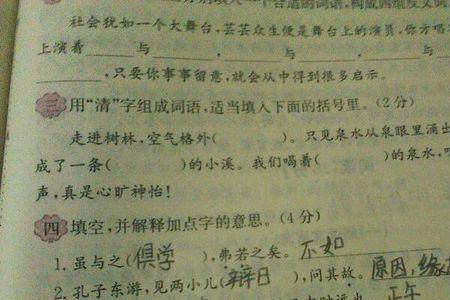 入一个合适的词语,构成四组反义词
社会犹如一个大舞台,芸芸众生便是舞台上的演员,你方唱
上演着____与____、____与____、____与____
____,只要你事事留意,就会从中得到很多启示。
三 用“清”字组成词语,适当填入下面的括号里。(2分)
走进树林,空气格外(　　)。只见泉水从泉眼里涌出
成了一条(　　)的小溪。我们喝着(　　)的泉水,
声,真是心旷神怡!
四 填空,并解释加点字的意思。(4分)
1. 虽与之(俱学),弗若之矣。不如
2. 孔子东游,见两小儿(辩日),问其故。原因,缘
正午